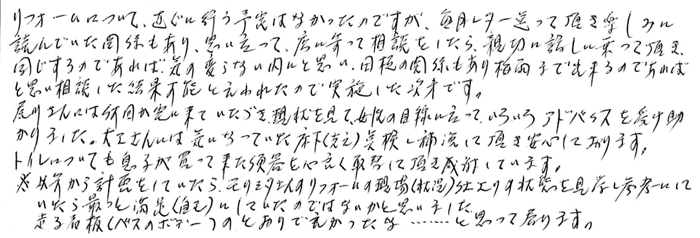 リフォームについて、直ぐに行う予定はなかったのですが、毎月レター送って頂き楽しみに
読んでいた関係もあり、思い立って、店に寄って相談をしたら、親切に話しに乗って頂き、
同じするのであれば、気の変らない内にと思い、日程の関係もあり格安で出来るのであれば
と思い相談した結果可能と云われたので実施した次第です。
尾川さんには何回か宅に来ていただき、現状を見て女性の目線に立って、いろいろアドバイスを受け助
かりました。大工さんには気になっていた床下(支え)点検し補強して頂き安心しております。
トイレについても息子が買って来た便器を心良く取替して頂き感謝しています。
※以前から計画をしていたら、モリシタさんのリフォームの現場(状況)仕上りの状態を見学し参考にして
いたら最っと満足(自宅)にしていたのではないかと思いました
走る看板(バスのボデー)のとおりで良かったな………と思って居ります。